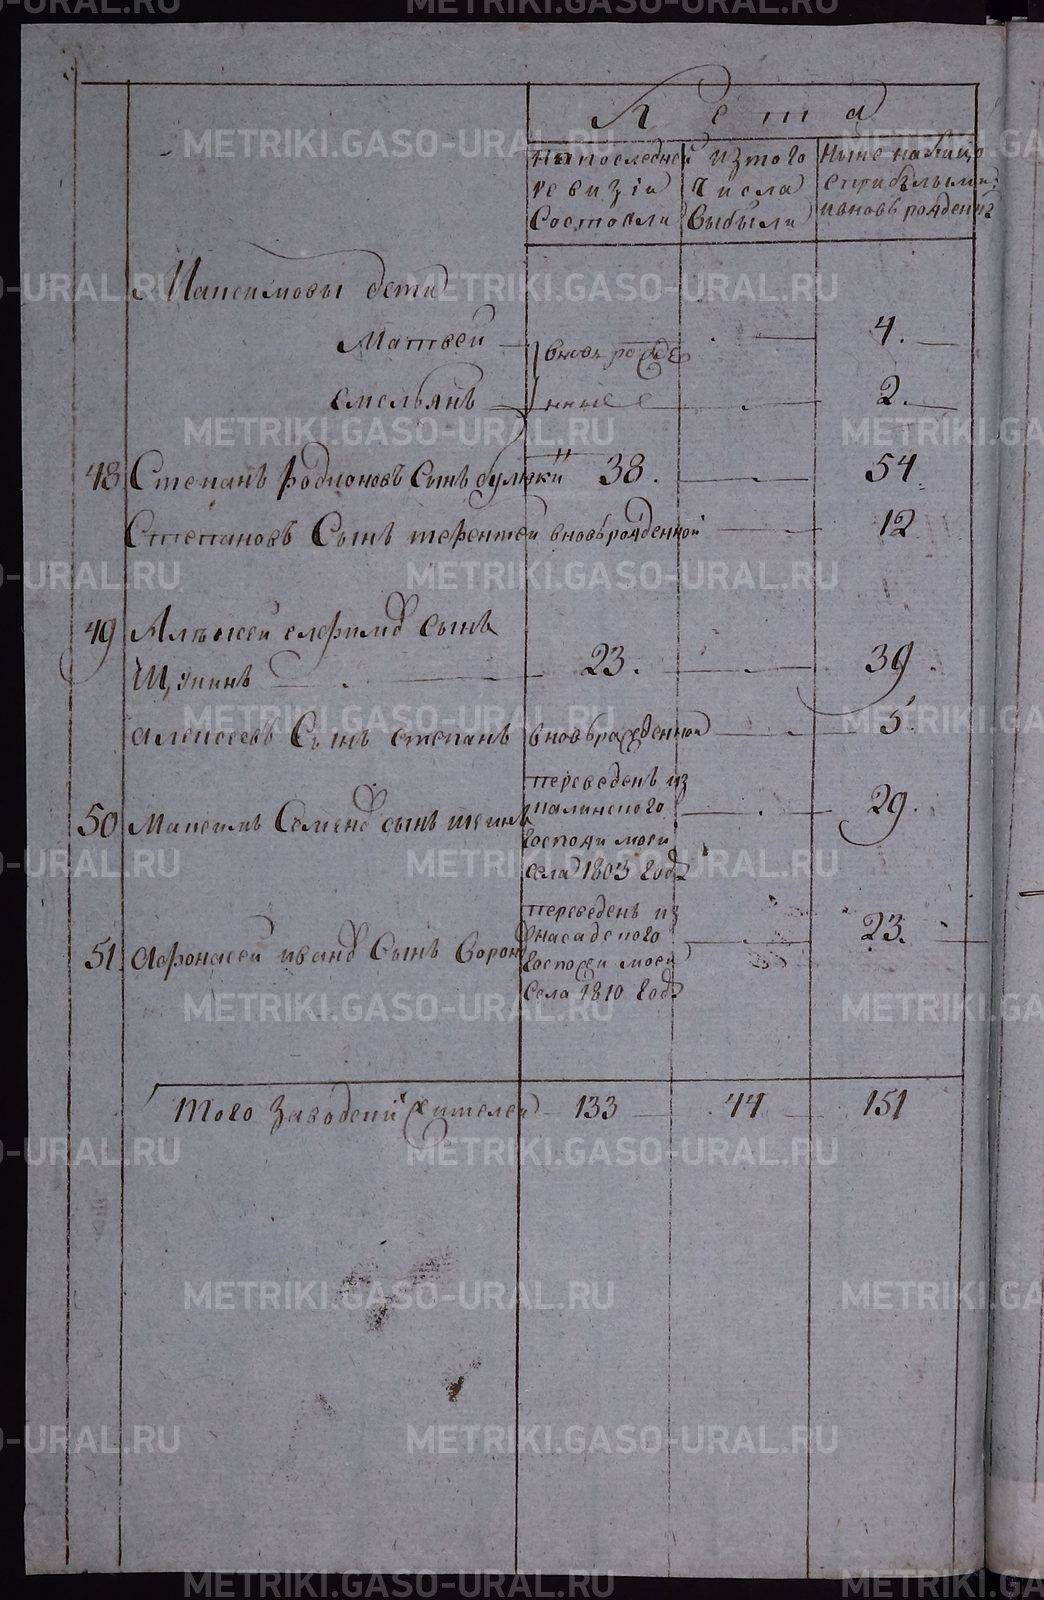 Лета
на последней ревизіи состояли
из того числа выбыли
Ныне на лицо с прибылыми и вновь рожденны
Максимовы дети
Матвей вновь рожде 4.
емельянъ нные 2.
48 Степанъ Родионовъ Сынъ 38. 54
Степановъ Сынъ терентей вновь рожденной 12
49 Алексей ефимов сынъ
Щукинъ 23. 39.
алексеевъ Сынъ степанъ вновь рожденной 5
50 Максимъ Семенов сынъ 29.
переведенъ из
госпожи моей
села 1803 году
51 афонасей иванов Сынъ 23.
переведенъ из
насадского
госпожи моей
села 1810 году
Итого Заводский жителей 133 44 151
METRIKI.GASO-URAL.RU